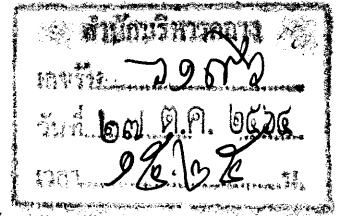 สำนักบริหารกลาง
เลขรับ
วันที่ ๒๗ ต.ค. ๒๕๖๔
เวลา ๑๕.๒๕ น.